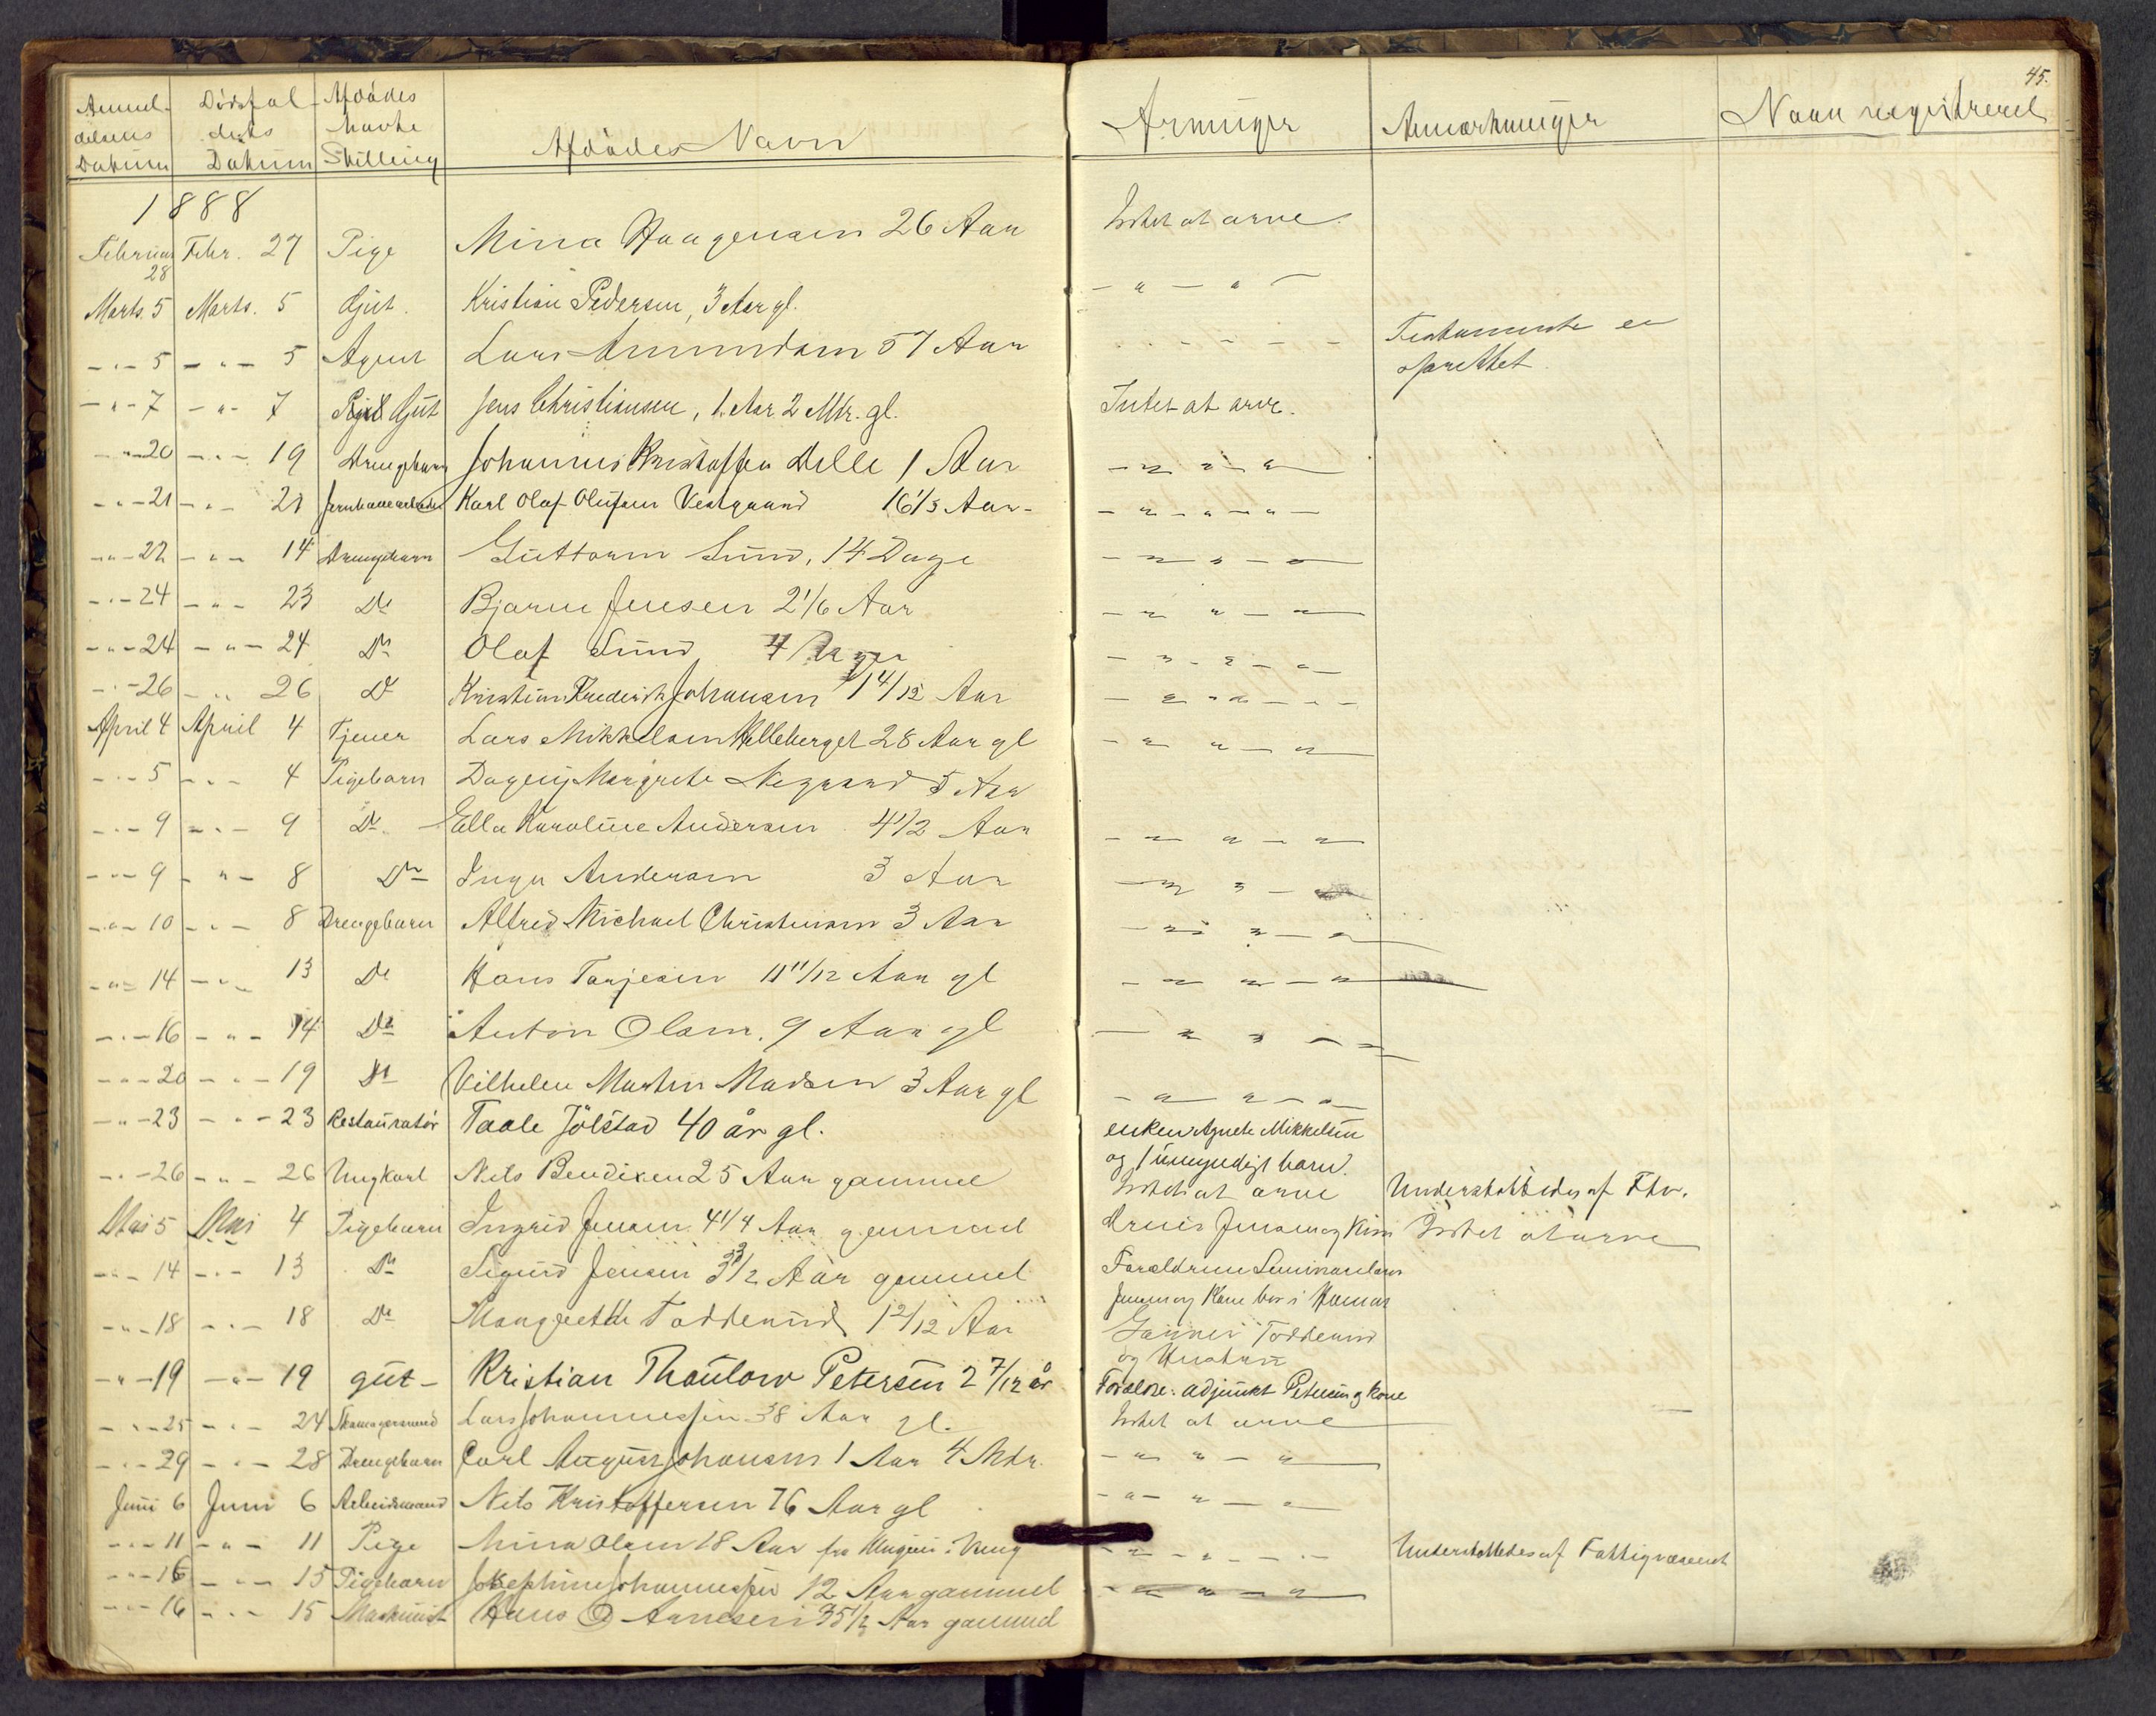 45.
Anmel- Dødsfal- Afdødes
delsens dets
Datum Datum Stilling Afdødes Navn Arvinger Anmærkninger Navn registreret
1888
Februar 28 Febr. 27 Pige Mina Haagensen 26 Aar Intet at arve.
Marts. 5 Marts. 5 Gut. Kristian Pedersen, 3 Aar gl. - " - "
- " - 5 - " - 5 Agent Lars Amundsen 57 Aar Testamente er
oprettet.
- " - 7 - " - 7 Gut Jens Christiansen, 1. Aar 2 Mdr. gl. Intet at arve.
- " - 20 - " - 19 Drengebarn Johannes Kristoffer Delle 1 Aar - " " "
- " - 21 - " - 21 Karl Olaf Olufsen Vestgaard 16 1/3 Aar - " - " - " -
- " - 22 - " - 14 Drengebarn Guttorm Lund, 14 Dage - " " - "
- " - 24 - " - 23 Do Bjarne Jensen 2 1/6 Aar - " " - "
- " - 24 - " - 24 Do Olaf Lund 7 - " - " - "
- " - 26 - " - 26 Do Kristian Frederik Johansen 1 4/12 Aar - " - " - -
April 4 April 4 Tjener Lars Mikkelsen Helleberget 28 Aar gl - " " - "
- " - 5 - " - 4 Pigebarn Dagny Margrete Negaard 5 Aar
- " - 9 - " - 9 Do Ella Karoline Andersen 4 1/2 Aar - " " - "
- " - 9 - " - 8 Do Inga Andersen 3 Aar - " " -
- " - 10 - " - 8 Drengebarn Alfred Michael Christensen 3 Aar - " " - "
- " - 14 - " - 13 Do Hans Tarjesen 11 11/12 Aar gl - " " - "
- " - 16 - " - 14 Do Anton Olsen. 9 Aar gl - " " - "
- " - 20 - " - 19 Do Vilhelm Martin Madsen 3 Aar gl - " " - "
- " - 23 - " - 23 Restauratør Taale Jölstad 40 år gl. enken Agnete Mikkelsen
og 1 umyndigt barn.
- " - 26 - " - 26 Ungkarl Nils Bendixen 25 Aar gammel Intet at arve Understøttedes af Ftv.
Mai 5 Mai 4 Pigebarn Ingrid Jensen 4 1/4 Aar gammel Jensen og Intet at arve
- " - 14 - " - 13 Do Sigurd Jensen 3 1/2 Aar gammel Forældrene Seminarlærer
Jensen og Kone bor i Hamar
- " - 18 - " - 18 Do Margrethe Todderud 1 2/12 Aar Garver Todderud
og Hustru
- " - 19 - " - 19 gut - Kristian Thaulow Petersen 2 7/12 år Forældre: adjunkt Petersen og kone
- " - 25 - " - 24 Skomagersvend Lars Johannessen 38 Aar gl. Intet at arve
- " - 29 - " - 28 Drengebarn Carl August Johansen 1 Aar 4 Mdr. - " " - "
Juni 6 Juni 6 Arbeidsmand Nils Kristoffersen 76 Aar gl - " - " - "
- " - 11 - " - 11 Pige Mina Olsen 18 Aar fra i Vang - " - " - " - Understøttedes af Fattigvæsenet
- " - 16 - " - 15 Pigebarn Josephine Johannessen 12 Aar gammel - " " - "
- " - 16 - " - 15 Maskinist Hans O Arnesen 35 1/2 Aar gammel